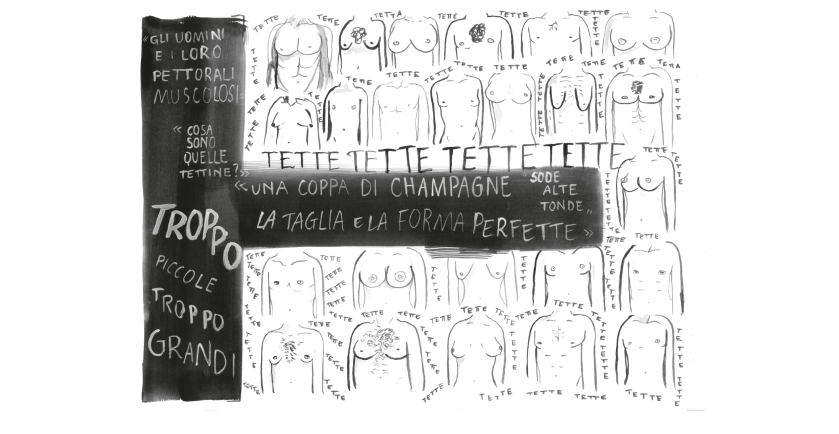 TETTE TETTE TETTA TETTE TETTE TETTE
« GLI UOMINI
E I LORO
PETTORALI
MUSCOLOSI
TETTE
TETTE
TETTE TETTE TETTE TETTE TETTE TETTE TETTA
« COSA
SONO
QUELLE
TETTINE? »
TETTE
TETTE
TETTE
TETTE
TETTE
TETTE TETTE TETTE TETTE
TETTE TETTE
« UNA COPPA DI CHAMPAGNE
LA TAGLIA E LA FORMA PERFETTE »
“SODE
ALTE
TONDE„
TROPPO
PICCOLE
TROPPO
GRANDI
TETTE TETTE TETTE TETTE
TETTE
TETTE
TETTE
TETTE
TETTE
TETTE
TETTE TETTE TETTE TETTE TETTE TETTE
TETTE
TETTE
TETTE
TETTE
TETTE
TETTE TETTE TETTE TETTE TETTE